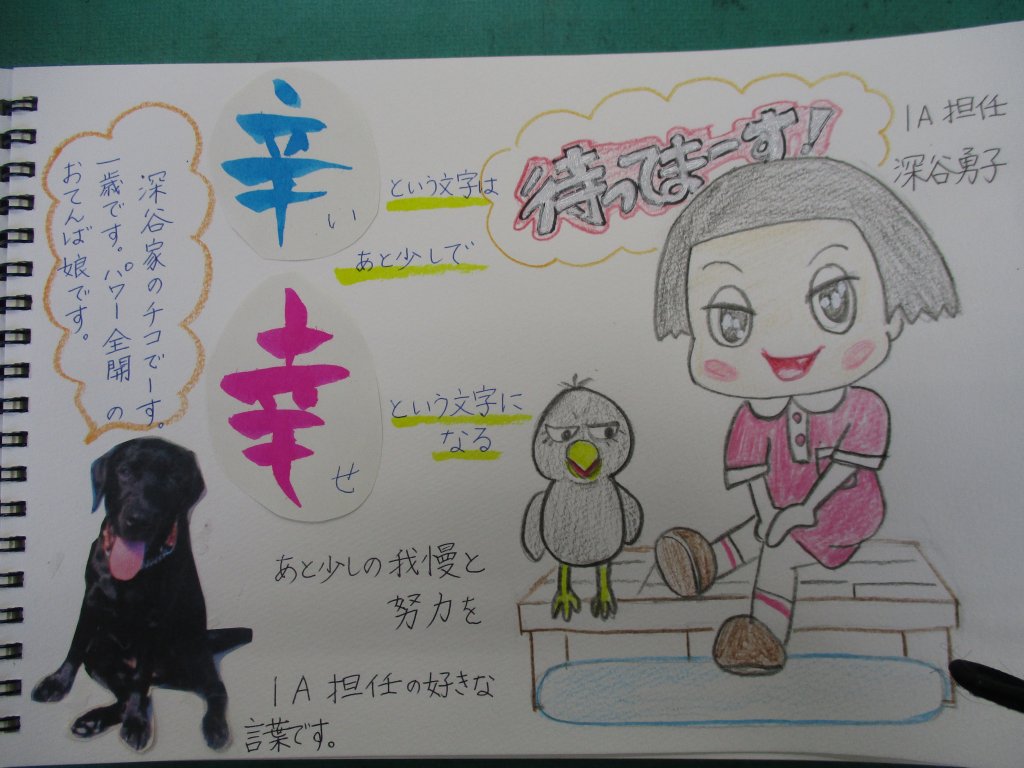 深谷家のチコでーす。
一歳です。パワー全開の
おてんば娘です。
辛い
という文字は
あと少しで
幸せ
という文字に
なる
あと少しの我慢と
努力を
1A担任の好きな
言葉です。
待ってまーす!
1A担任
深谷勇子